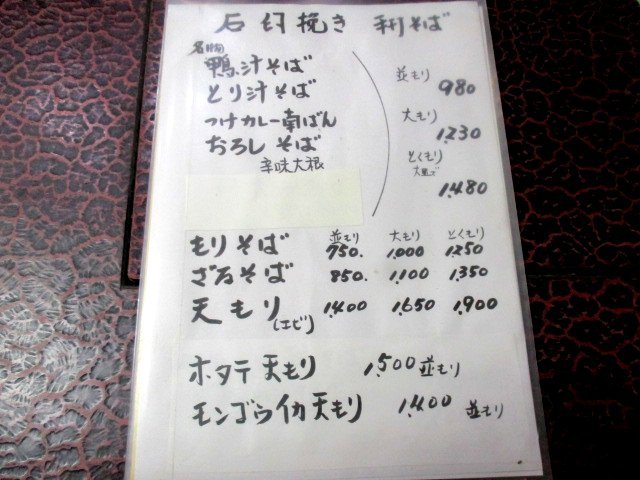 石臼挽き 利そば
名物
鴨汁そば
とり汁そば
つけカレー南ばん
おろしそば
辛味大根
並もり
980
大もり
1,230
とくもり
1,480
並もり 大もり とくもり
もりそば 750. 1,000 1,250
ざるそば 850. 1,100 1,350
天もり(エビ) 1,400 1,650 1,900
ホタテ天もり 1,500 並もり
モンゴウイカ天もり 1,400 並もり